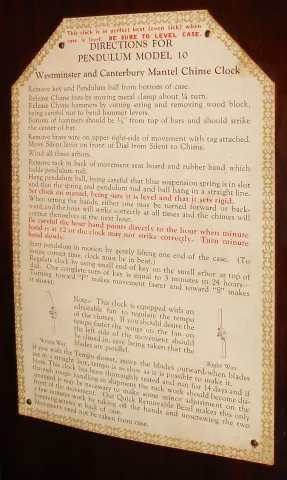 This clock is in perfect beat (even tick) when
case is level. BE SURE TO LEVEL CASE.
DIRECTIONS FOR
PENDULUM MODEL 10
Westminster and Canterbury Mantel Chime Clock
Remove key and Pendulum ball from bottom of case.
Release Chime bars by moving metal clamp about ¼ turn.
Release Chime hammers by cutting string and removing wood block,
being careful not to bend hammer levers.
Bottom of hammers should be from top of bars and should strike
the center of bar.
Remove brass wire on upper right-side of movement with tag attached.
Move Silent lever on front of Dial from Silent to Chime.
Wind all three arbors.
Remove tack in back of movement seat board and rubber band which
holds pendulum rod.
Hang pendulum ball, being careful that blue suspension spring is in slot
and that the spring and pendulum rod and ball hang in a straight line.
Set clock on mantel, being sure it is level and that it sets rigid.
When setting the hands, either one may be turned forward or back-
ward, and the hour will strike correctly at all times and the chimes will
correct themselves at the next hour.
Be careful the hour hand points directly to the hour when minute
hand is at 12 or the clock may not strike correctly. Turn minute
hand slowly.
Start pendulum in motion by gently lifting one end of the case. (To
insure correct time, clock must be in beat.)
Regulate clock by using small end of key on the small arbor at top of
dial. One complete turn of key is equal to 3 minutes in 24 hours—
Turning toward "F" makes movement faster and toward "S" makes
it slower.
Note— This clock is equipped with an
adjustable fan to regulate the tempo
of the chimes. If you should desire the
tempo faster the wings on the fan on
the left side of the movement should
be closed in, care being taken that the
blades are parallel.
Wrong Way
Right Way
If you wish the Tempo slower, move the blades outward—when blades
are in a straight line, tempo is as slow as it is possible to make it.
Note. This clock has been thoroughly tested and run for 14 days and if
through rough handling in shipment the rack work should become dis-
arranged it may be necessary to make some minor adjustment on the
front of the movement. Our Quick Removable Bezel makes this only
a few minutes work by taking off the hands and unscrewing the two
fastening screws in back of case.
Movement need not be taken from case.